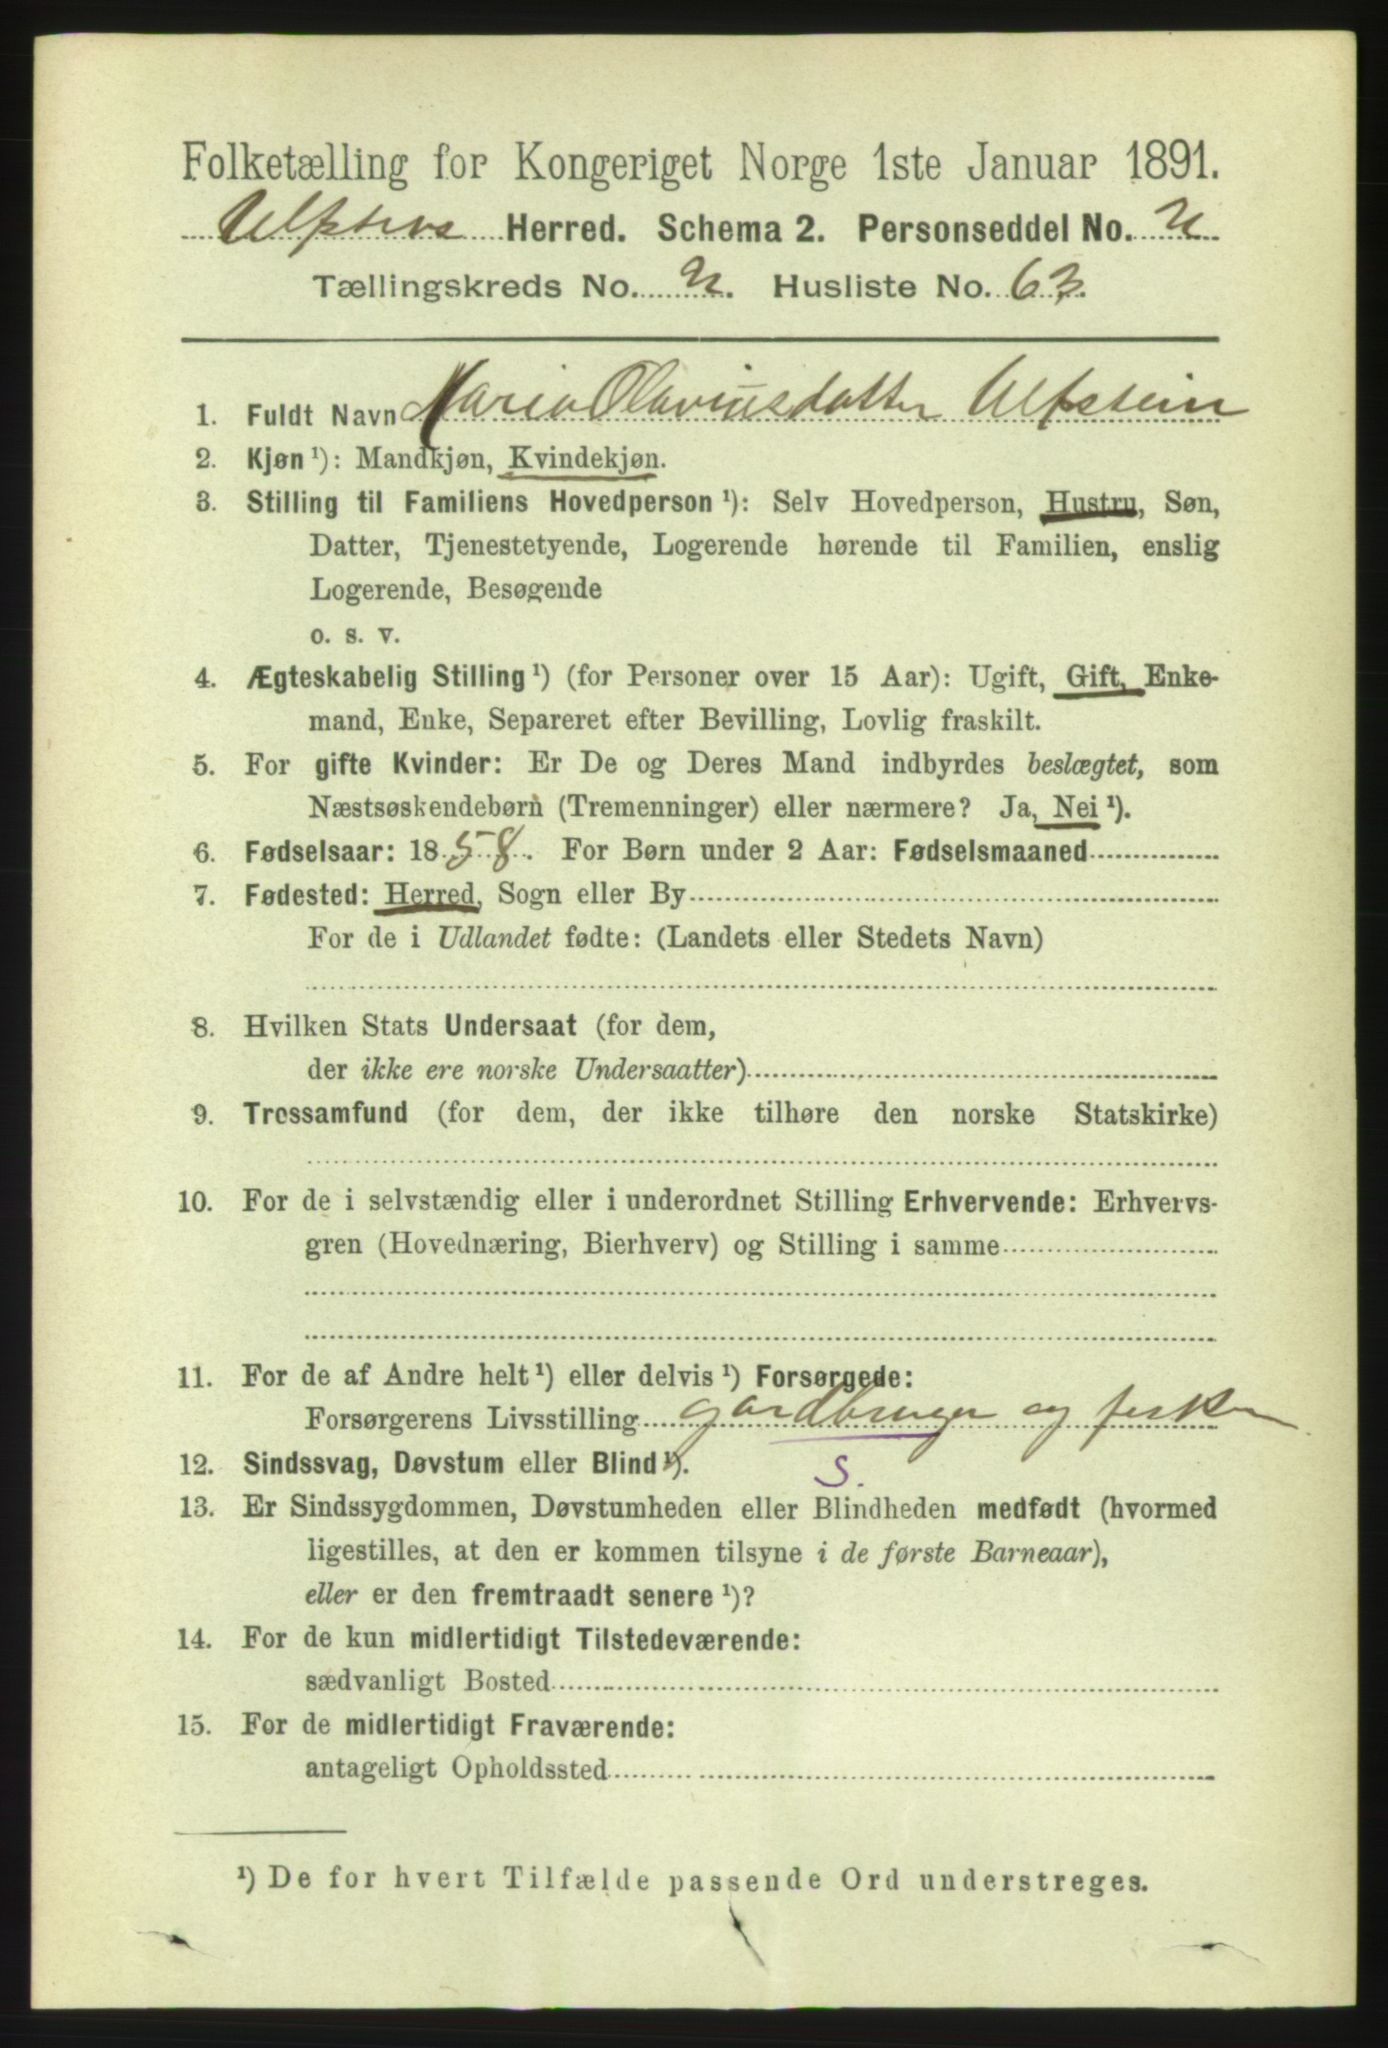 Folketælling for Kongeriget Norge 1ste Januar 1891.
Ulfsten Herred. Schema 2. Personseddel No. 2
Tællingskreds No. 2. Husliste No. 63.
1. Fuldt Navn Maria Olaviusdatter Ulfstein
2. Kjøn ¹): Mandkjøn, Kvindekjøn.
3. Stilling til Familiens Hovedperson ¹): Selv Hovedperson, Hustru, Søn,
Datter, Tjenestetyende, Logerende hørende til Familien, enslig
Logerende, Besøgende
o. s. v.
4. Ægteskabelig Stilling ¹) (for Personer over 15 Aar): Ugift, Gift, Enke-
mand, Enke, Separeret efter Bevilling, Lovlig fraskilt.
5. For gifte Kvinder: Er De og Deres Mand indbyrdes beslægtet, som
Næstsøskendebørn (Tremenninger) eller nærmere? Ja, Nei ¹).
6. Fødselsaar: 1858. For Børn under 2 Aar: Fødselsmaaned
7. Fødested: Herred, Sogn eller By
For de i Udlandet fødte: (Landets eller Stedets Navn)
8. Hvilken Stats Undersaat (for dem,
der ikke ere norske Undersaatter)
9. Trossamfund (for dem, der ikke tilhøre den norske Statskirke)
10. For de i selvstændig eller i underordnet Stilling Erhvervende: Erhvervs-
gren (Hovednæring, Bierhverv) og Stilling i samme
11. For de af Andre helt ¹) eller delvis ¹) Forsørgede:
Forsørgerens Livsstilling gardbruger og fisker
12. Sindssvag, Døvstum eller Blind ¹). S.
13. Er Sindssygdommen, Døvstumheden eller Blindheden medfødt (hvormed
ligestilles, at den er kommen tilsyne i de første Barneaar),
eller er den fremtraadt senere ¹)?
14. For de kun midlertidigt Tilstedeværende:
sædvanligt Bosted
15. For de midlertidigt Fraværende:
antageligt Opholdssted
¹) De for hvert Tilfælde passende Ord understreges.